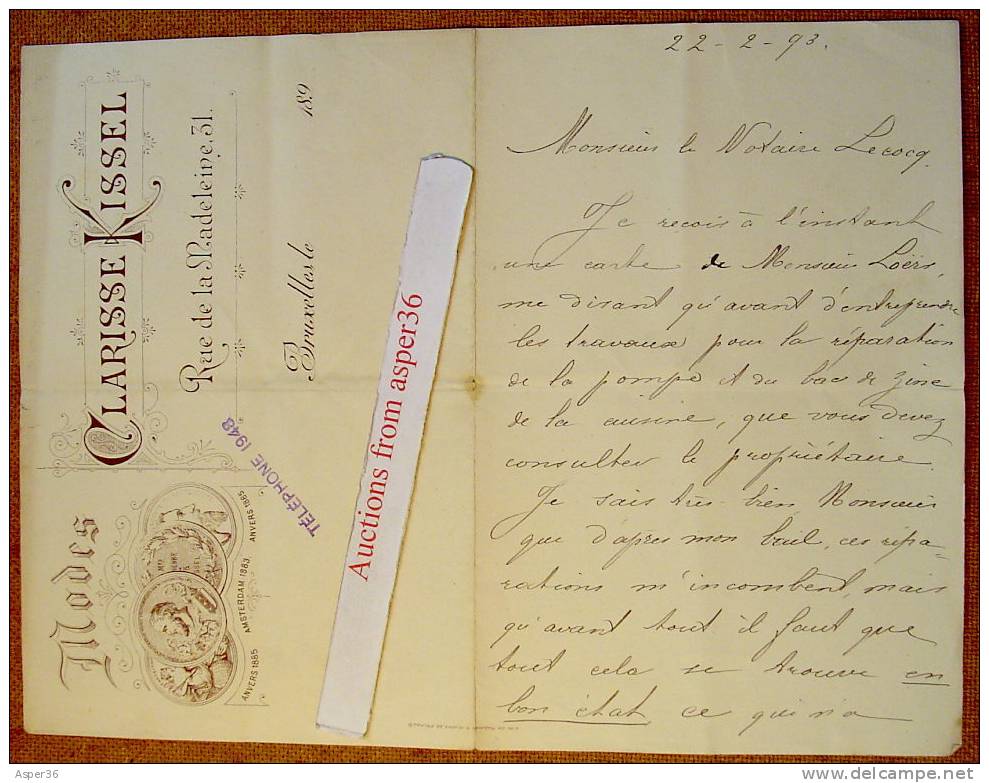 Modes
ANVERS 1885
AMSTERDAM 1883
ANVERS 1885
CLARISSE KISSEL
Rue de la Madeleine, 31.
TÉLÉPHONE 1948
Bruxelles, le 189
Auctions from asper36
22-2-93.
Monsieur le Notaire Lecocq.
Je reçois à l'instant
une carte de Monsieur Loërs,
me disant qu'avant d'entreprendre
les travaux pour la réparation
de la pompe et du bac de zinc
de la cuisine, que vous devez
consulter le propriétaire.
Je sais très bien Monsieur
que d'après mon bail, ces répa-
rations m'incombent, mais
qu'avant tout il faut que
tout cela se trouve en
bon état ce qui n'a
Asper36
www.delcampe.net